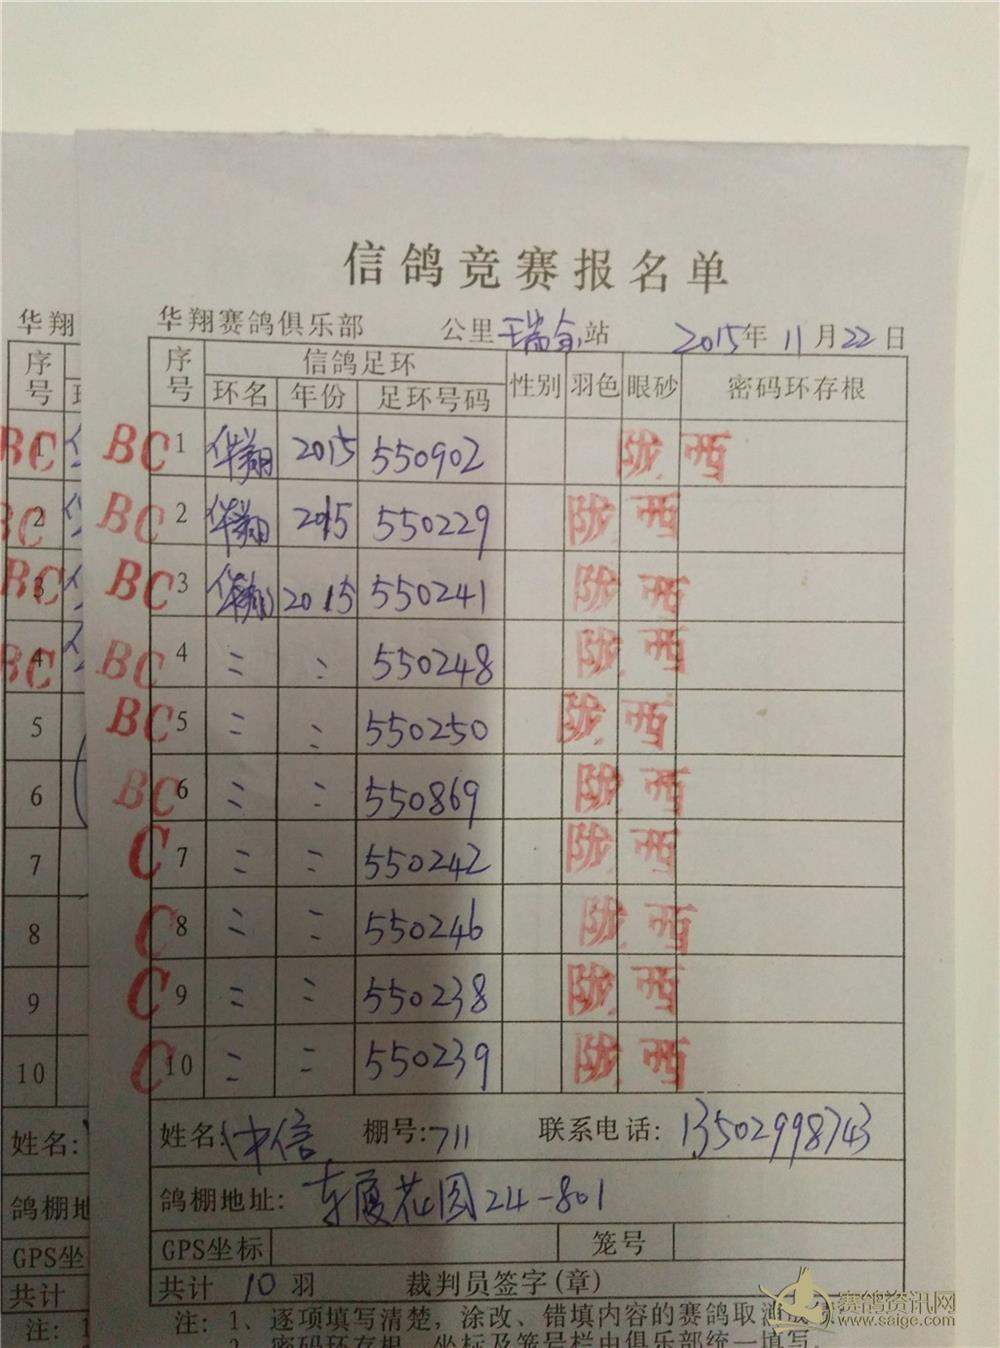 信鸽竞赛报名单
华翔
华翔赛鸽俱乐部 公里 瑞金 站 2015年 11月22日
序号 信鸽足环 性别 羽色 眼砂 密码环存根
环名 年份 足环号码
BC 1 华翔 2015 550902 陇西
BC 2 华翔 2015 550229 陇西
BC 3 华翔 2015 550241 陇西
BC 4 〃 〃 550248 陇西
BC 5 〃 〃 550250 陇西
BC 6 〃 〃 550869 陇西
C 7 〃 〃 550242 陇西
C 8 〃 〃 550246 陇西
C 9 〃 〃 550238 陇西
C 10 〃 〃 550239 陇西
姓名: 信 棚号:711 联系电话: 13502998743
鸽棚地址: 东厦花园24-801
GPS坐标 笼号
共计 10 羽 裁判员签字(章)
注: 1、逐项填写清楚，涂改、错填内容的赛鸽取消
2、密码环存根、坐标及笼号栏由俱乐部统一填写。
序号
BC 1
BC 2
BC 3
BC 4
5
6
7
8
9
10
姓名:
鸽棚地
GPS坐
共计
注: 1
赛鸽资讯网
www.saige.com